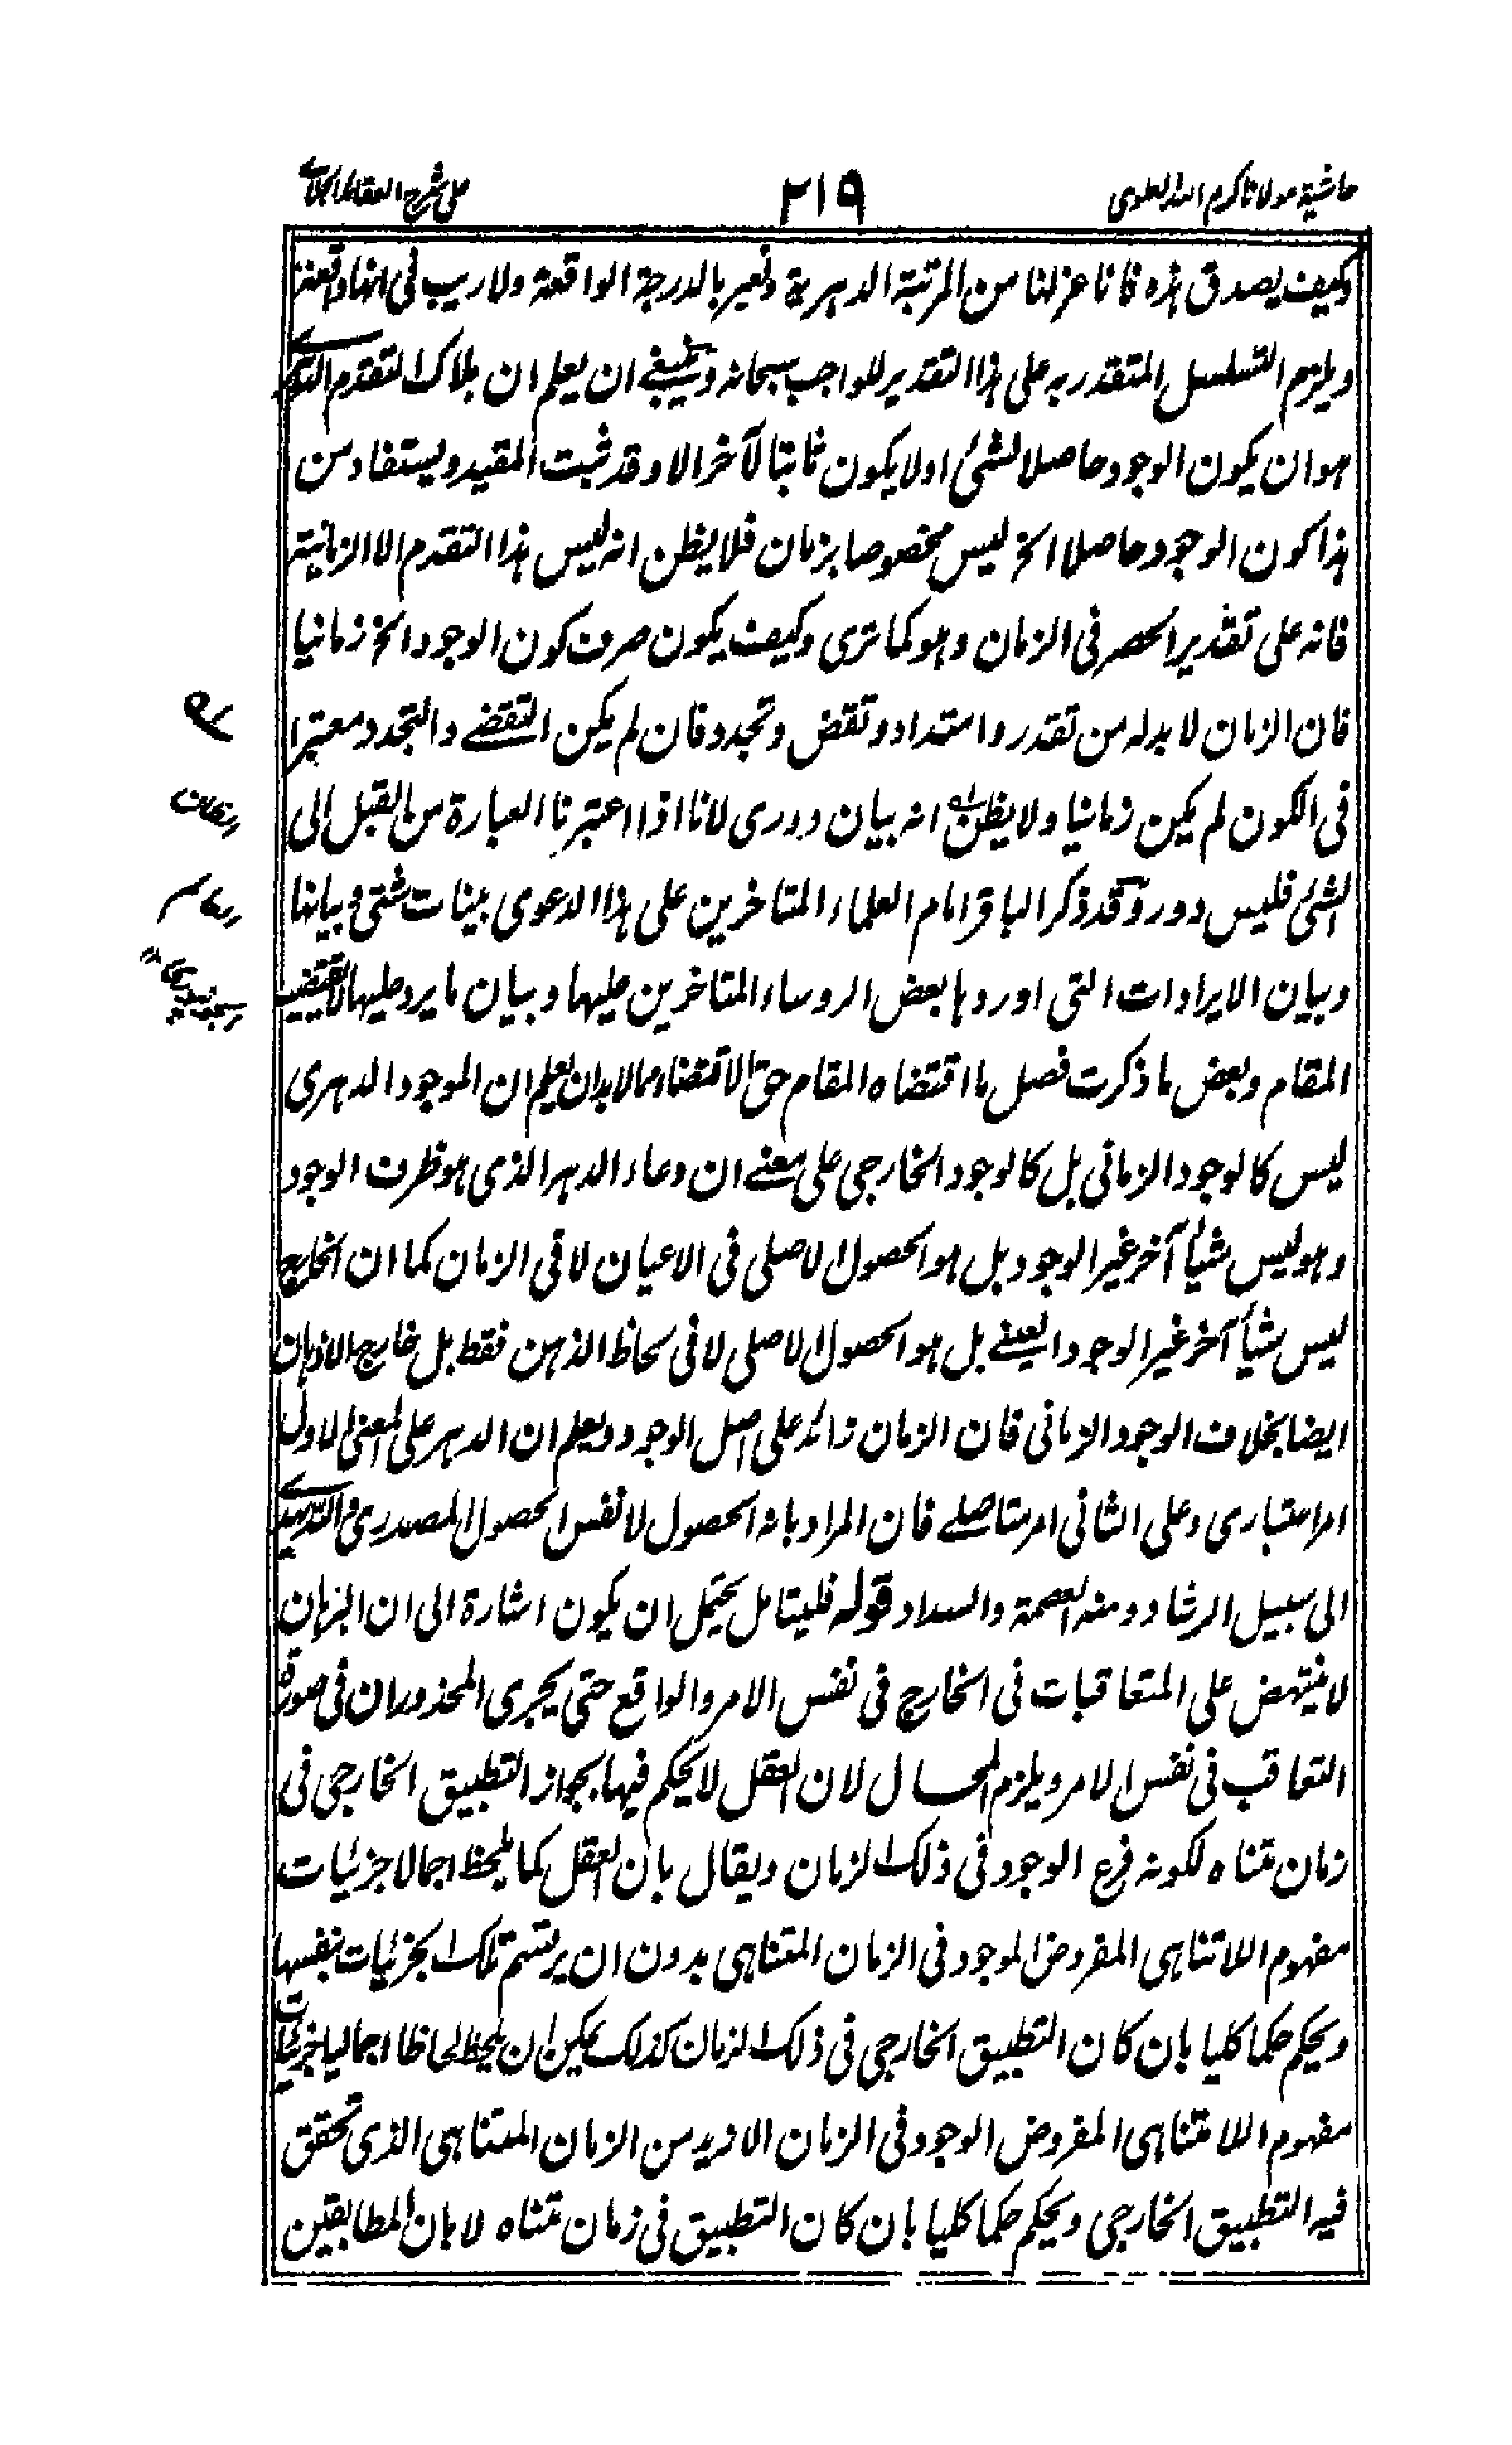 حاشية مولانا كرم الله العلوى ٢١٩ على شرح العقائد الجلالى
وكيف يصدق هذه فانا عزلنا من المرتبة الدهرية ونعبر بالدرجة الواقعة ولا ريب فى انها واقعة
ويلزم التسلسل المتقدر به على هذا التقدير للواجب سبحانه وينبغى ان يعلم ان ملاك التقدم
هو ان يكون الوجود حاصلا لشئ اولا يكون ثابتا لآخر الا وقد ثبت المقيد ويستفاد من
هذا كون الوجود حاصلا الخ ليس مخصوصا بزمان فلا يظن انه ليس هذا التقدم الا الزمانية
فانه على تقدير الحصر فى الزمان وهو كما ترى وكيف يكون صرف كون الوجود الخ زمانيا
فان الزمان لا بد له من تقدر وامتداد وتقض وتجدد فان لم يكن التقضى والتجدد معتبرا
فى الكون لم يكن زمانيا ولا يظن انه بيان دورى لانا اذا اعتبرنا العبارة من القبل الى
الشئ فليس دور وقد ذكر الباقر امام العلماء المتاخرين على هذا الدعوى بينات شتى وبيانها
وبيان الايرادات التى اوردها بعض الروساء المتاخرين عليها وبيان ما يرد عليها لا يقتضيه
المقام وبعض ما ذكرت فصل ما اقتضاه المقام حق الاقتضاء ومما لا بد ان يعلم ان الموجود الدهرى
ليس كالوجود الزمانى بل كالوجود الخارجى على معنى ان وعاء الدهر الذى هو ظرف الوجود
وهو ليس شيأ آخر غير الوجود بل هو الحصول الاصلى فى الاعيان لا فى الزمان كما ان الخارج
ليس شيأ آخر غير الوجود العينى بل هو الحصول الاصلى لا فى لحاظ الذهن فقط بل خارج الاذهان
ايضا بخلاف الوجود الزمانى فان الزمان زائد على اصل الوجود ويعلم ان الدهر على المعنى الاول
امر اعتبارى وعلى الثانى امر متاصل فان المراد بانه الحصول لا نفس الحصول المصدرى والله يهدى
الى سبيل الرشاد ومنه العصمة والسداد قوله فليتامل يحتمل ان يكون اشارة الى ان البرهان
لا ينتهض على المتعاقبات فى الخارج فى نفس الامر والواقع حتى يجرى المحذوران فى صورة
التعاقب فى نفس الامر ويلزم المحال لان العقل لا يحكم فيها بجواز التطبيق الخارجى فى
زمان متناه لكونه فرع الوجود فى ذلك الزمان ويقال بان العقل كما يلحظ اجمالا جزئيات
مفهوم اللاتناهى المفروض الموجود فى الزمان المتناهى بدون ان يرتسم تلك الجزئيات بنفسها
ويحكم حكما كليا بان كان التطبيق الخارجى فى ذلك الزمان كذلك يمكن ان يلحظ لحاظا اجماليا جزئيات
مفهوم اللامتناهى المفروض الوجود فى الزمان الازيد من الزمان المتناهى الذى تحقق
فيه التطبيق الخارجى ويحكم حكما كليا بان كان التطبيق فى زمان متناه لا بان المطابقين